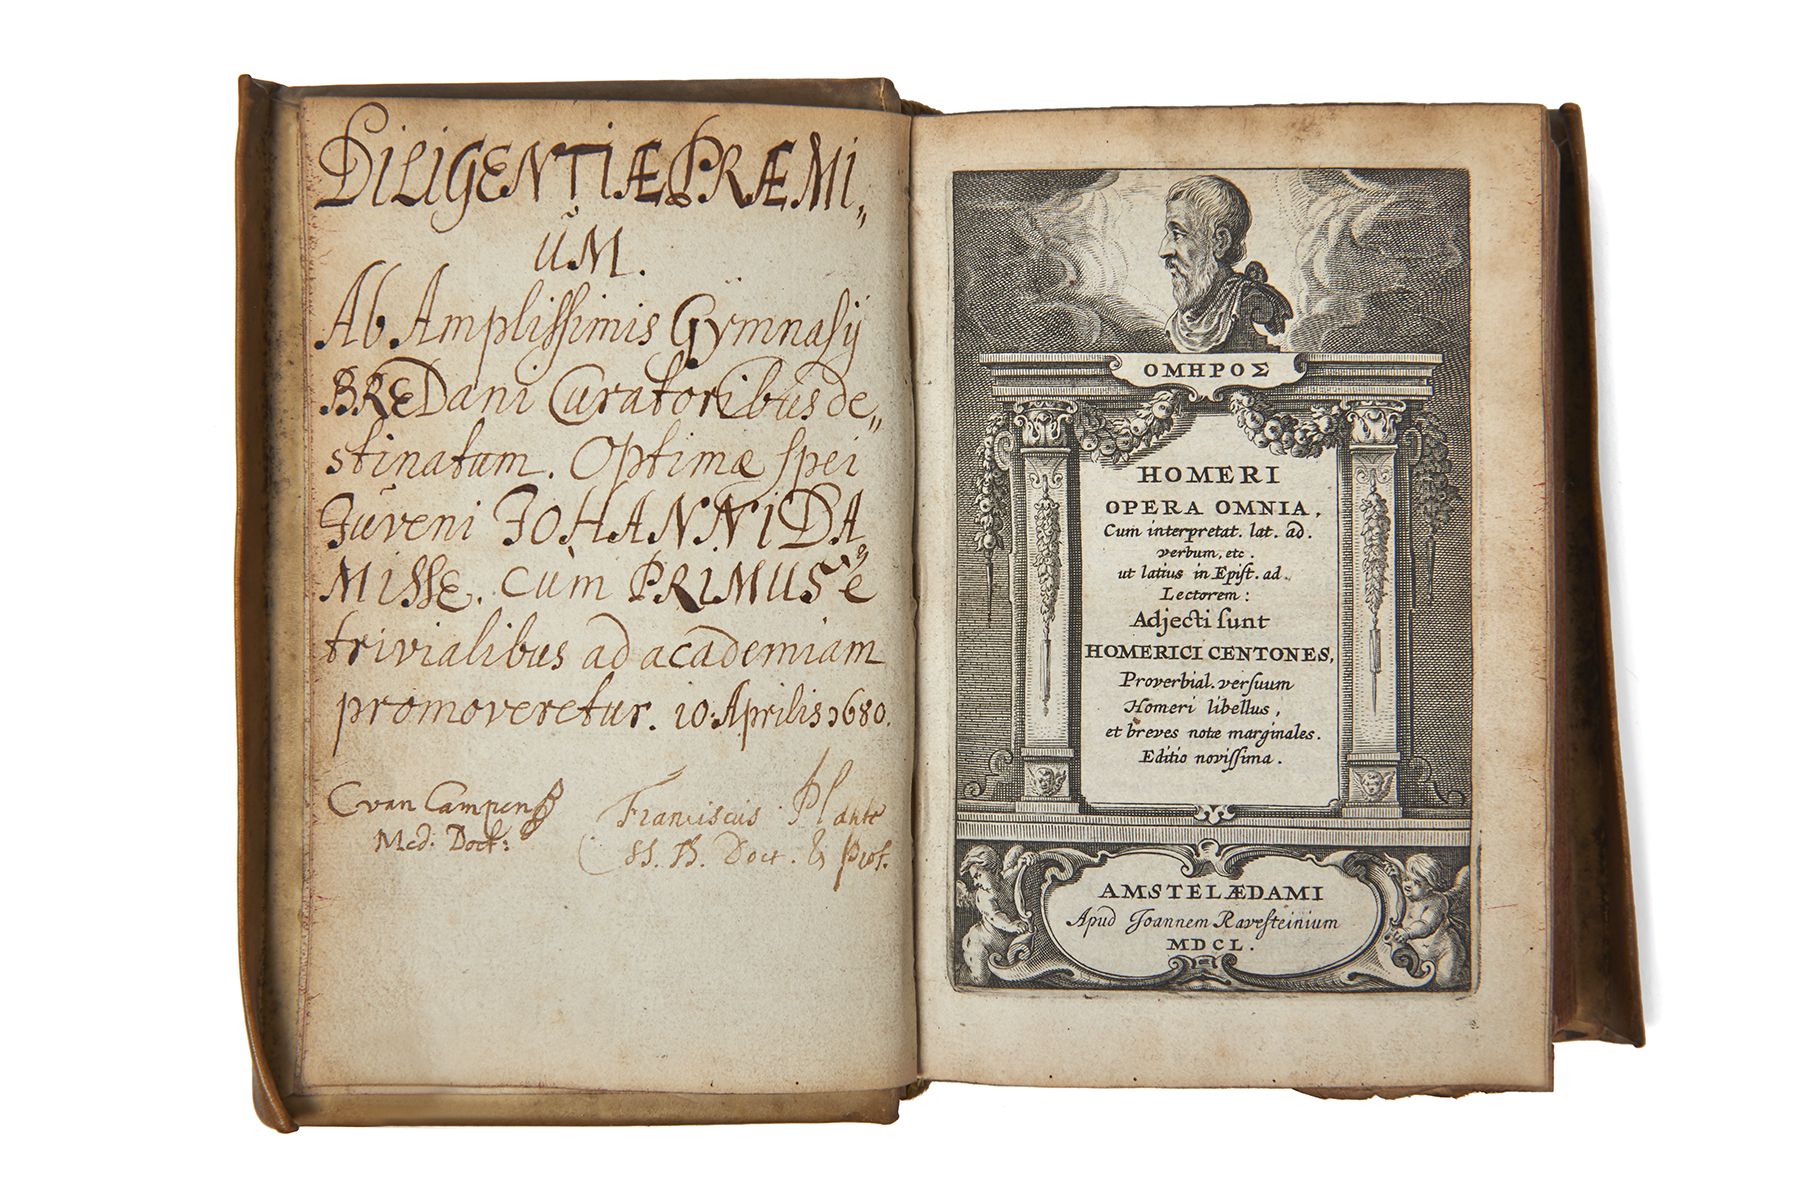 DILIGENTIÆ PRÆMI„
ŭM.
Ab Amplissimis Gÿmnasÿ
BREDani Curatoribus de„
stinatum. Optimæ spei
Jŭveni JOHANNI DA
MISSE. cùm PRIMUS è
trivialibus ad academiam
promoveretur. 10. Aprilis 1680.
C van Campen
Med. Doct:
Franciscus Plante
SS. Th. Doct. & Prof.
ΟΜΗΡΟΣ
HOMERI
OPERA OMNIA,
Cum interpretat. lat. ad.
verbum, etc.
ut latius in Epist. ad.
Lectorem:
Adjecti sunt
HOMERICI CENTONES,
Proverbial. versuum
Homeri libellus,
et breves notæ marginales.
Editio novissima.
AMSTELÆDAMI
Apud Joannem Ravesteinium
MDCL.